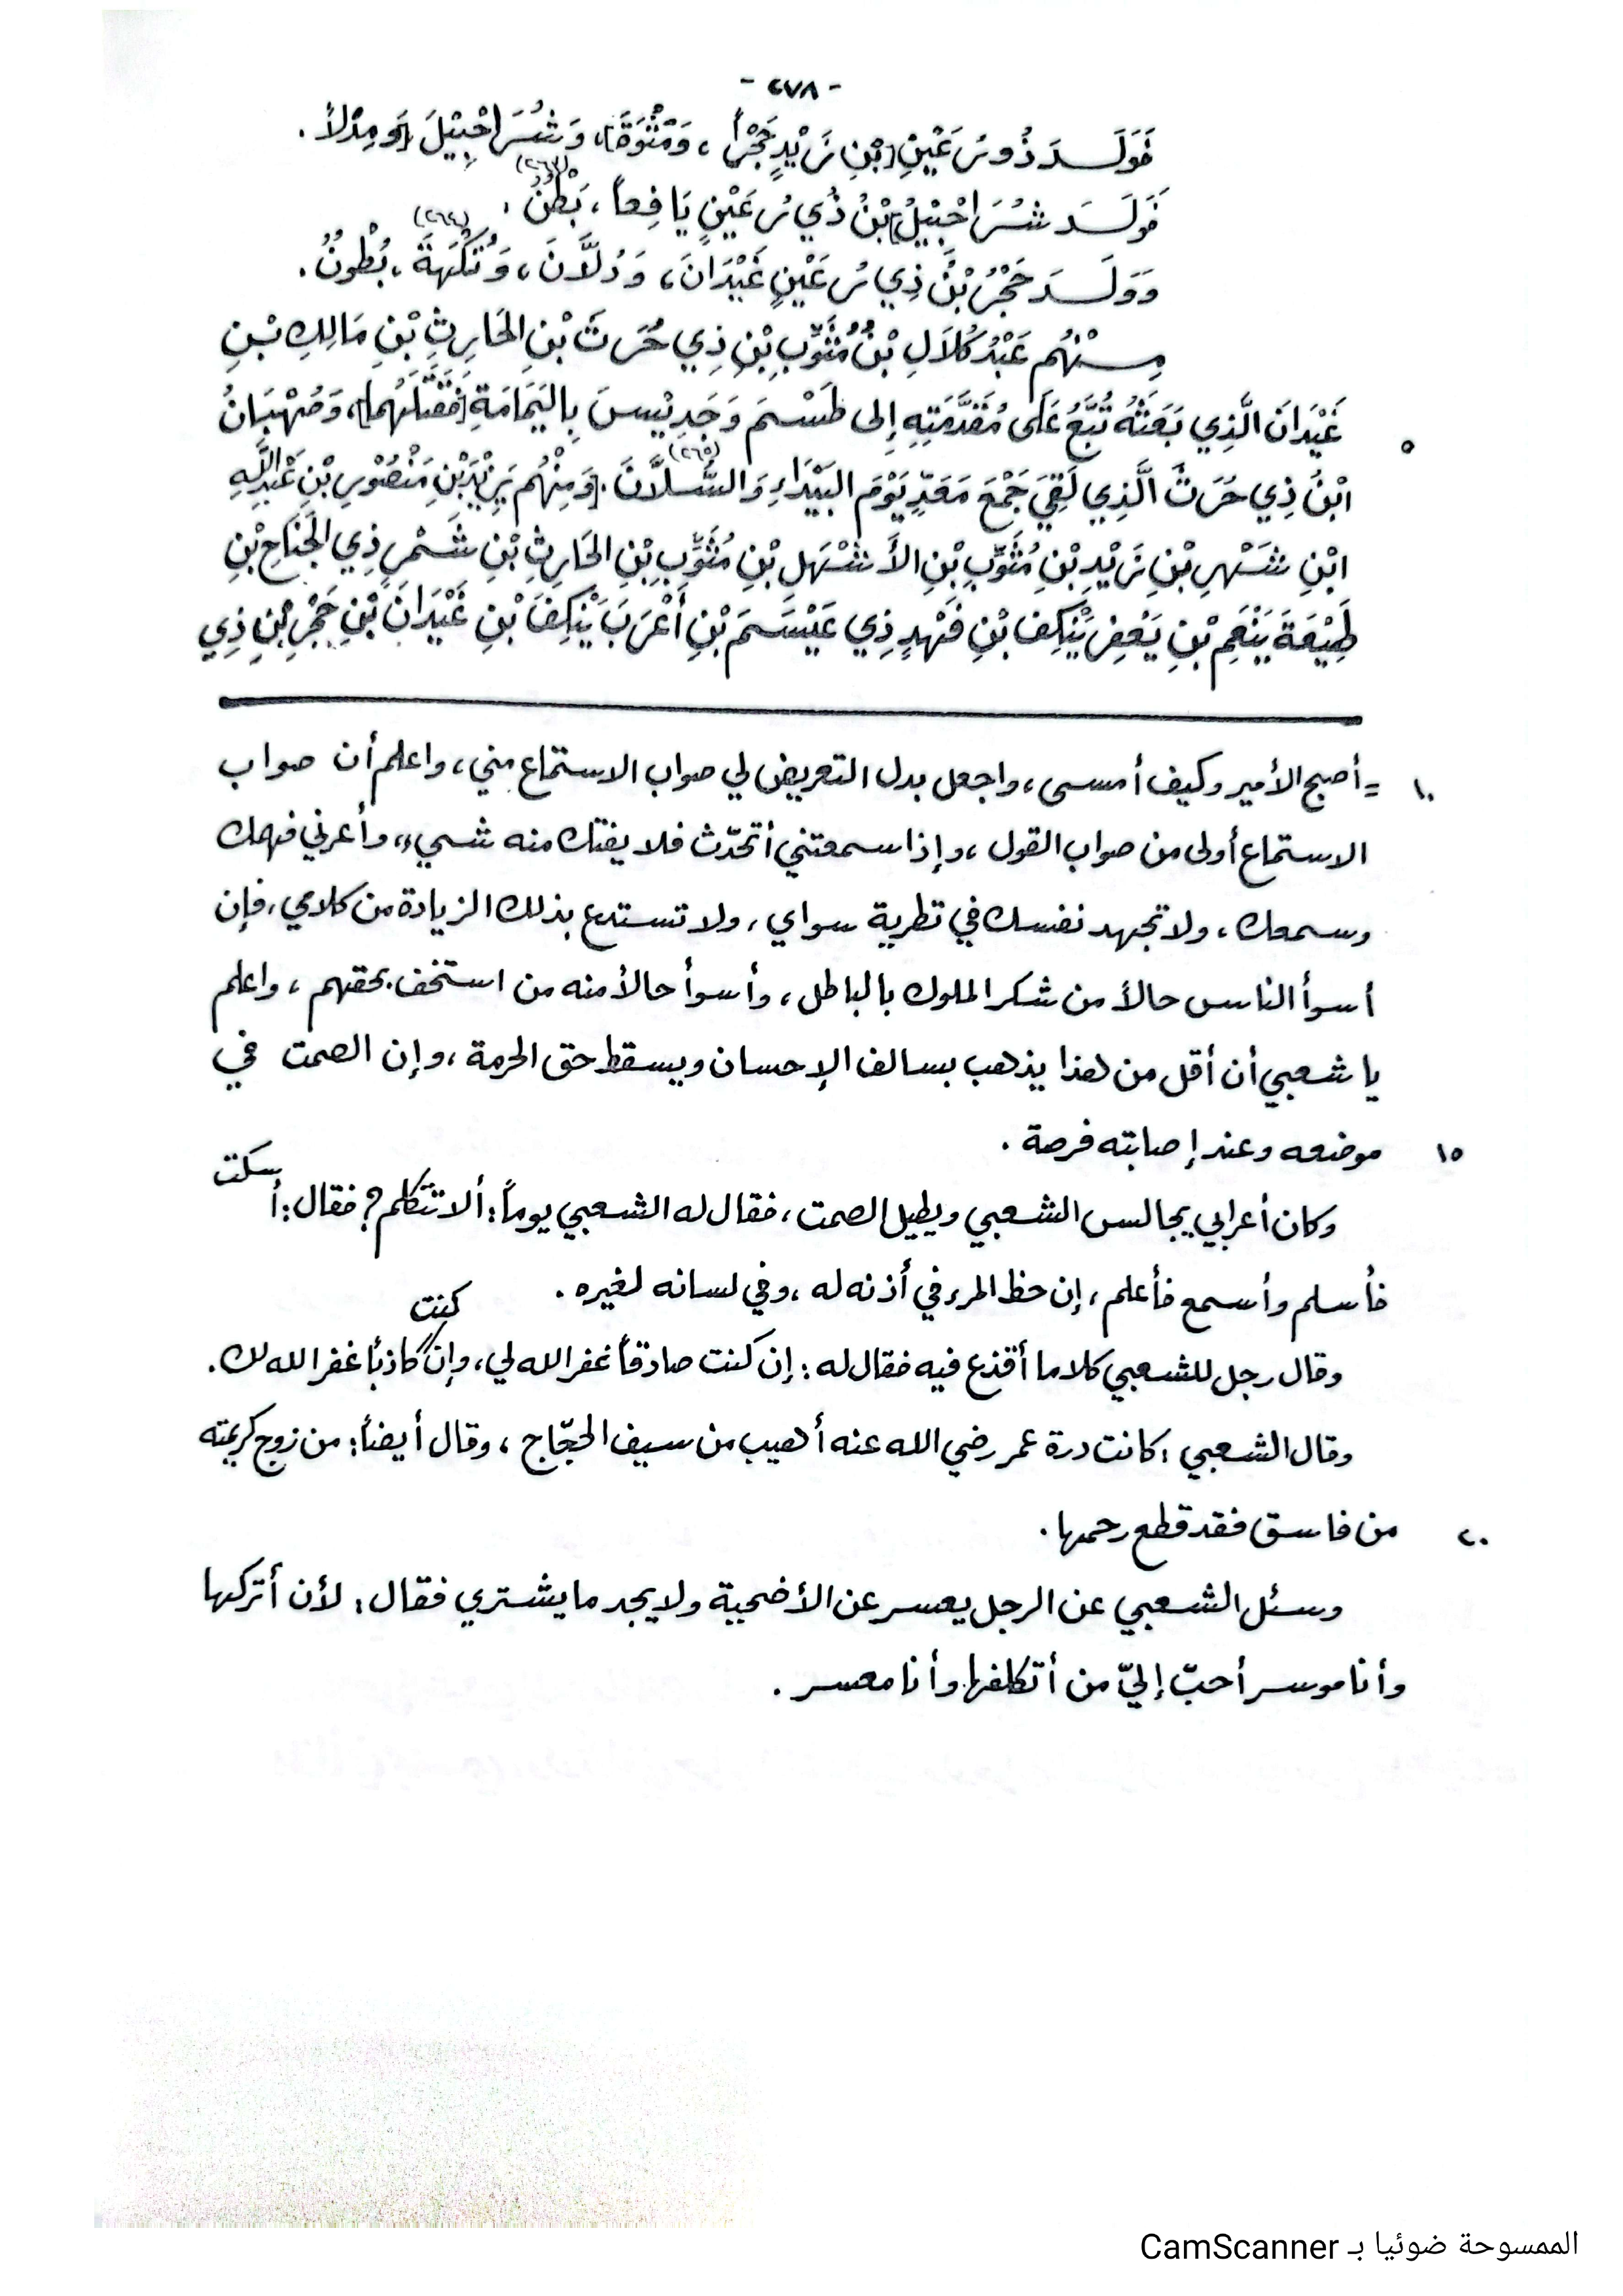 - ٢٧٨ -
فَوَلَـدَ ذُو رُعَيْنِ [بْنِ زَيْدٍ حَجْراً، وَمُثْوَةَ]، وَشُرَاحْبِيْلَ [وَمِدْلاً.
فَوَلَـدَ شُرَاحْبِيْلُ] بْنُ ذِي رُعَيْنٍ يَافِعاً، بَطْنٌ. (٢٦٣)
وَوَلَـدَ حَجْرُ بْنُ ذِي رُعَيْنٍ غَيْدَانَ، وَدُلَّانَ، وَتُكَهَةَ، بُطُونٌ. (٢٦٤)
مِـنْهُم عَبْدُ كُلَالِ بْنُ مُثَوِّبِ بْنِ ذِي حُرَثَ بْنِ الحَارِثِ بْنِ مَالِكِ بْـنِ
٥ غَيْدَانَ الَّذِي بَعَثَهُ تُبَّعُ عَلَى مُقَدَّمَتِهِ إِلى طَسْمَ وَجَدِيْسَ بِاليَمَامَةِ [فَقَتَلَهُما]، وَصُهْبَانُ
ابْنُ ذِي حُرَثَ الَّذِي لَقِيَ جَمْعَ مَعَدٍّ يَوْمَ البَيْدَاءِ وَالسُّلَّانَ. (٢٦٥) [وَمِنْهُم يَزِيْدُ بْنِ مَنْصُوْرِ بْنِ عَبْدِاللّهِ
ابْنِ شَهْرِ بْنِ زَيْدِ بْنِ مُثَوِّبِ بْنِ الأَشْهَلِ بْنِ مُثَوِّبِ بْنِ الحَارِثِ بْنِ شَمْرِ ذِي الجَنَاحِ بْنِ
لَهِيْعَةَ يَنْعِمَ بْنِ يَعْفِرَ يَنْكِفَ بْنِ فَهْدٍ ذِي عَيْسَمَ بْنِ أَعْرَبَ يَنْكِفَ بْنِ غَيْدَانَ بْنِ حَجْرِ بْنِ ذِي
١٠ = أصبح الأمير وكيف أمسى، واجعل بدل التعريض لي صواب الاستماع مني، واعلم أن صواب
الاستماع أولى من صواب القول، وإذا سمعتني أتحدّث فلا يفتك منه شيء، وأعرني فهمك
وسمعك، ولا تجهد نفسك في تطرية سواي، ولا تستدع بذلك الزيادة من كلامي، فإن
أسوأ الناس حالاً من شكر الملوك بالباطل، وأسوأ حالاً منه من استخف بحقهم، واعلم
يا شعبي أن أقل من هذا يذهب بسالف الإحسان ويسقط حق الحرمة، وإن الصمت في
١٥ موضعه وعند إصابته فرصة.
وكان أعرابي يجالس الشعبي ويطيل الصمت، فقال له الشعبي يوماً: ألا تتكلم؟ فقال: أسكت
فأسلم وأسمع فأعلم، إن حظ المرء في أذنه له، وفي لسانه لغيره.
وقال رجل للشعبي كلاما أقذع فيه فقال له: إن كنت صادقاً غفر الله لي، وإن كنت كاذباً غفر الله لك.
وقال الشعبي: كانت درة عمر رضي الله عنه أهيب من سيف الحجّاج، وقال أيضاً: من زوج كريمته
٢٠ من فاسق فقد قطع رحمها.
وسئل الشعبي عن الرجل يعسر عن الأضحية ولا يجد ما يشتري فقال: لأن أتركها
وأنا موسر أحبّ إليّ من أتكلفها وأنا معسر.
الممسوحة ضوئيا بـ CamScanner